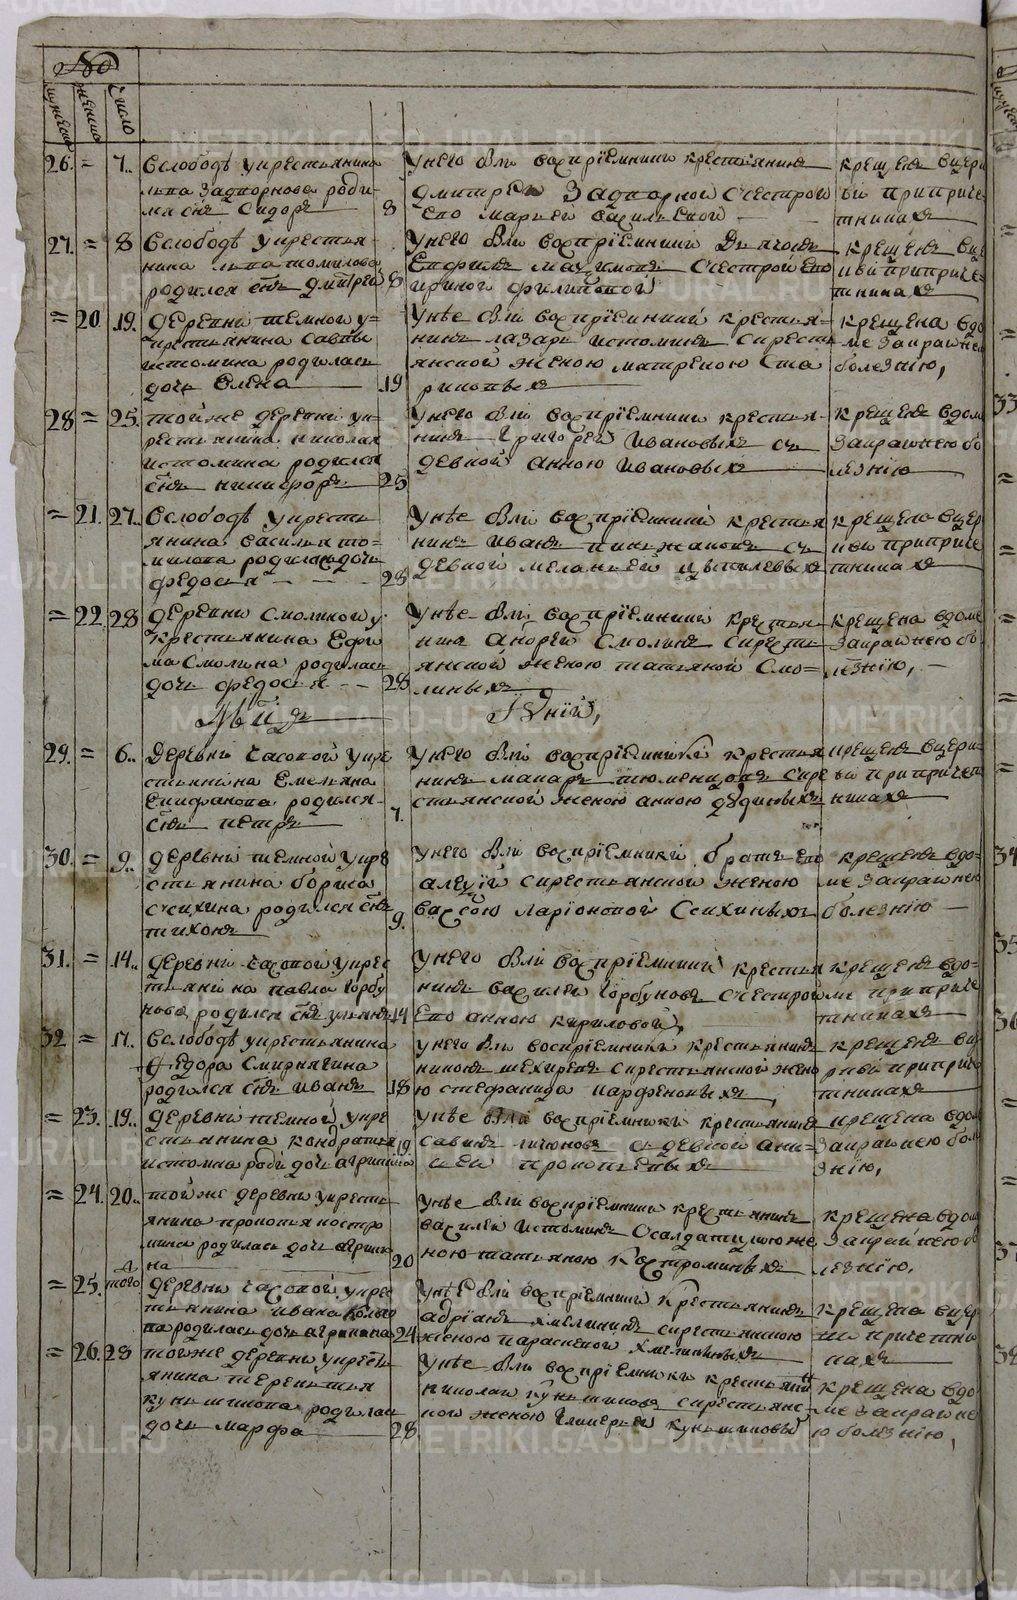 №
мужеска
женска
число
26. = 7.. Вслободѣ укрестьянина
Задворнова роди
лся снъ Сидоръ 8
Унего были восприемники крестьянинъ
Димитрей Задворной Сосестрой
Ево Марьей Васильевой
крещенъ вцерк
ви припричет
никахъ
27. = 8 Вслободѣ укрестья
нина Томилова
родился снъ Дмитрей 8
Унего были восприемники
Сосестрой Ево
Ириной Филиповой
крещенъ вце
припричет
никахъ
= 20. 19. Деревни темной у
крестьянина Саввы
истомина родилась
дочь Елена 19
Унѣе были восприемники крестья
нинъ лазарь истоминъ скресть
янской женою матреною
крещена вдо
ме закрайнею
болезнию,
28 = 25. тойже деревни ук
рестьянина николая
истомина родился
снъ никифоръ 25
Унего были восприемники крестья
нинъ Григорей Ивановыхъ съ
девкой Анною Ивановыхъ
крещенъ вдоме
закрайнею бо
лезнию
= 21. 27.. Вслободѣ укресть
янина василья то
милова родилась дочь
федосья 28
Унѣе были восприемники крестья
нинъ Иванъ съ
девкой меланьей
крещена вцерк
припричет
никахъ
= 22. 28 Деревни Смолиной у
крестьянина Ефи
ма Смолина родилась
дочь федосья 28
Унѣе были восприемники крестья
нинъ Андрей Смолинъ скресть
янской женою татьяной Смо
линыхъ
крещена вдоме
закрайнею бо
лезнию,
Іюній,
29. = 6.. Деревни часовой укре
стьянина Емельяна
Епифанова родился
снъ петръ 7.
Унего были восприемники крестья
нинъ макаръ тюменцовъ скре
стьянской женою анною
крещенъ вцерк
ви припричет
никахъ
30. = 9.. деревни темной укре
стьянина бориса
Ссихина родился снъ
тихонъ 9.
Унего были восприемники братъ Ево
алексѣй скрестьянской женою
Ларионовой Ссихиныхъ
крещенъ вдо
ме закрайнею
болезнию
31. = 14.. деревни часовой укрес
тьянина павла горбу
нова родился снъ 14
Унего были восприемники крестья
нинъ василей горбуновъ Ссестрой
Ево анною кириловой,
крещенъ вдо
ме приприче
тникахъ
32 = 17.. Вслободѣ укрестьянина
Федора Смирнягина
родился снъ Иванъ 18
Унего были восприемники крестьянинъ
скрестьянской жено
ю стефанида парфеновыхъ
крещенъ вце
ркви приприче
тникахъ
= 23. 19.. Деревни темной укре
стьянина кондратья
истомина роди дочь агрипина 19
Унѣе были восприемники крестьянинъ
савинъ съ девкой
крещена вдом
закрайнею бол
знию,
= 24. 20.. тойже деревни укресть
янина прокопья костро
мина родилась дочь агрипи
на 20
Унѣе были восприемники крестьянинъ
василей Истоминъ Ссалдатцкою же
ною татьяною Костроминыхъ
крещена вдом
закрайнею бо
лезнию,
= 25. того Деревни часовой укрес
тьянина ивана
родилась дочь агрипина 24
Унѣе были восприемники крестьянинъ
адрианъ хмелининъ скрестьянскою
женою параскевой Хмелининыхъ
крещена вцерк
при причетни
кахъ
= 26. 28 тойже деревни укресть
янина терентья
куньшикова родилась
дочь марфа 28
Унѣе были восприемники крестьянинъ
николай куньшиковъ скрестьянс
кой женою куньшиковы
крещена вдо
ме закрайне
ю болезнию,
METRIKI.GASO-URAL.RU